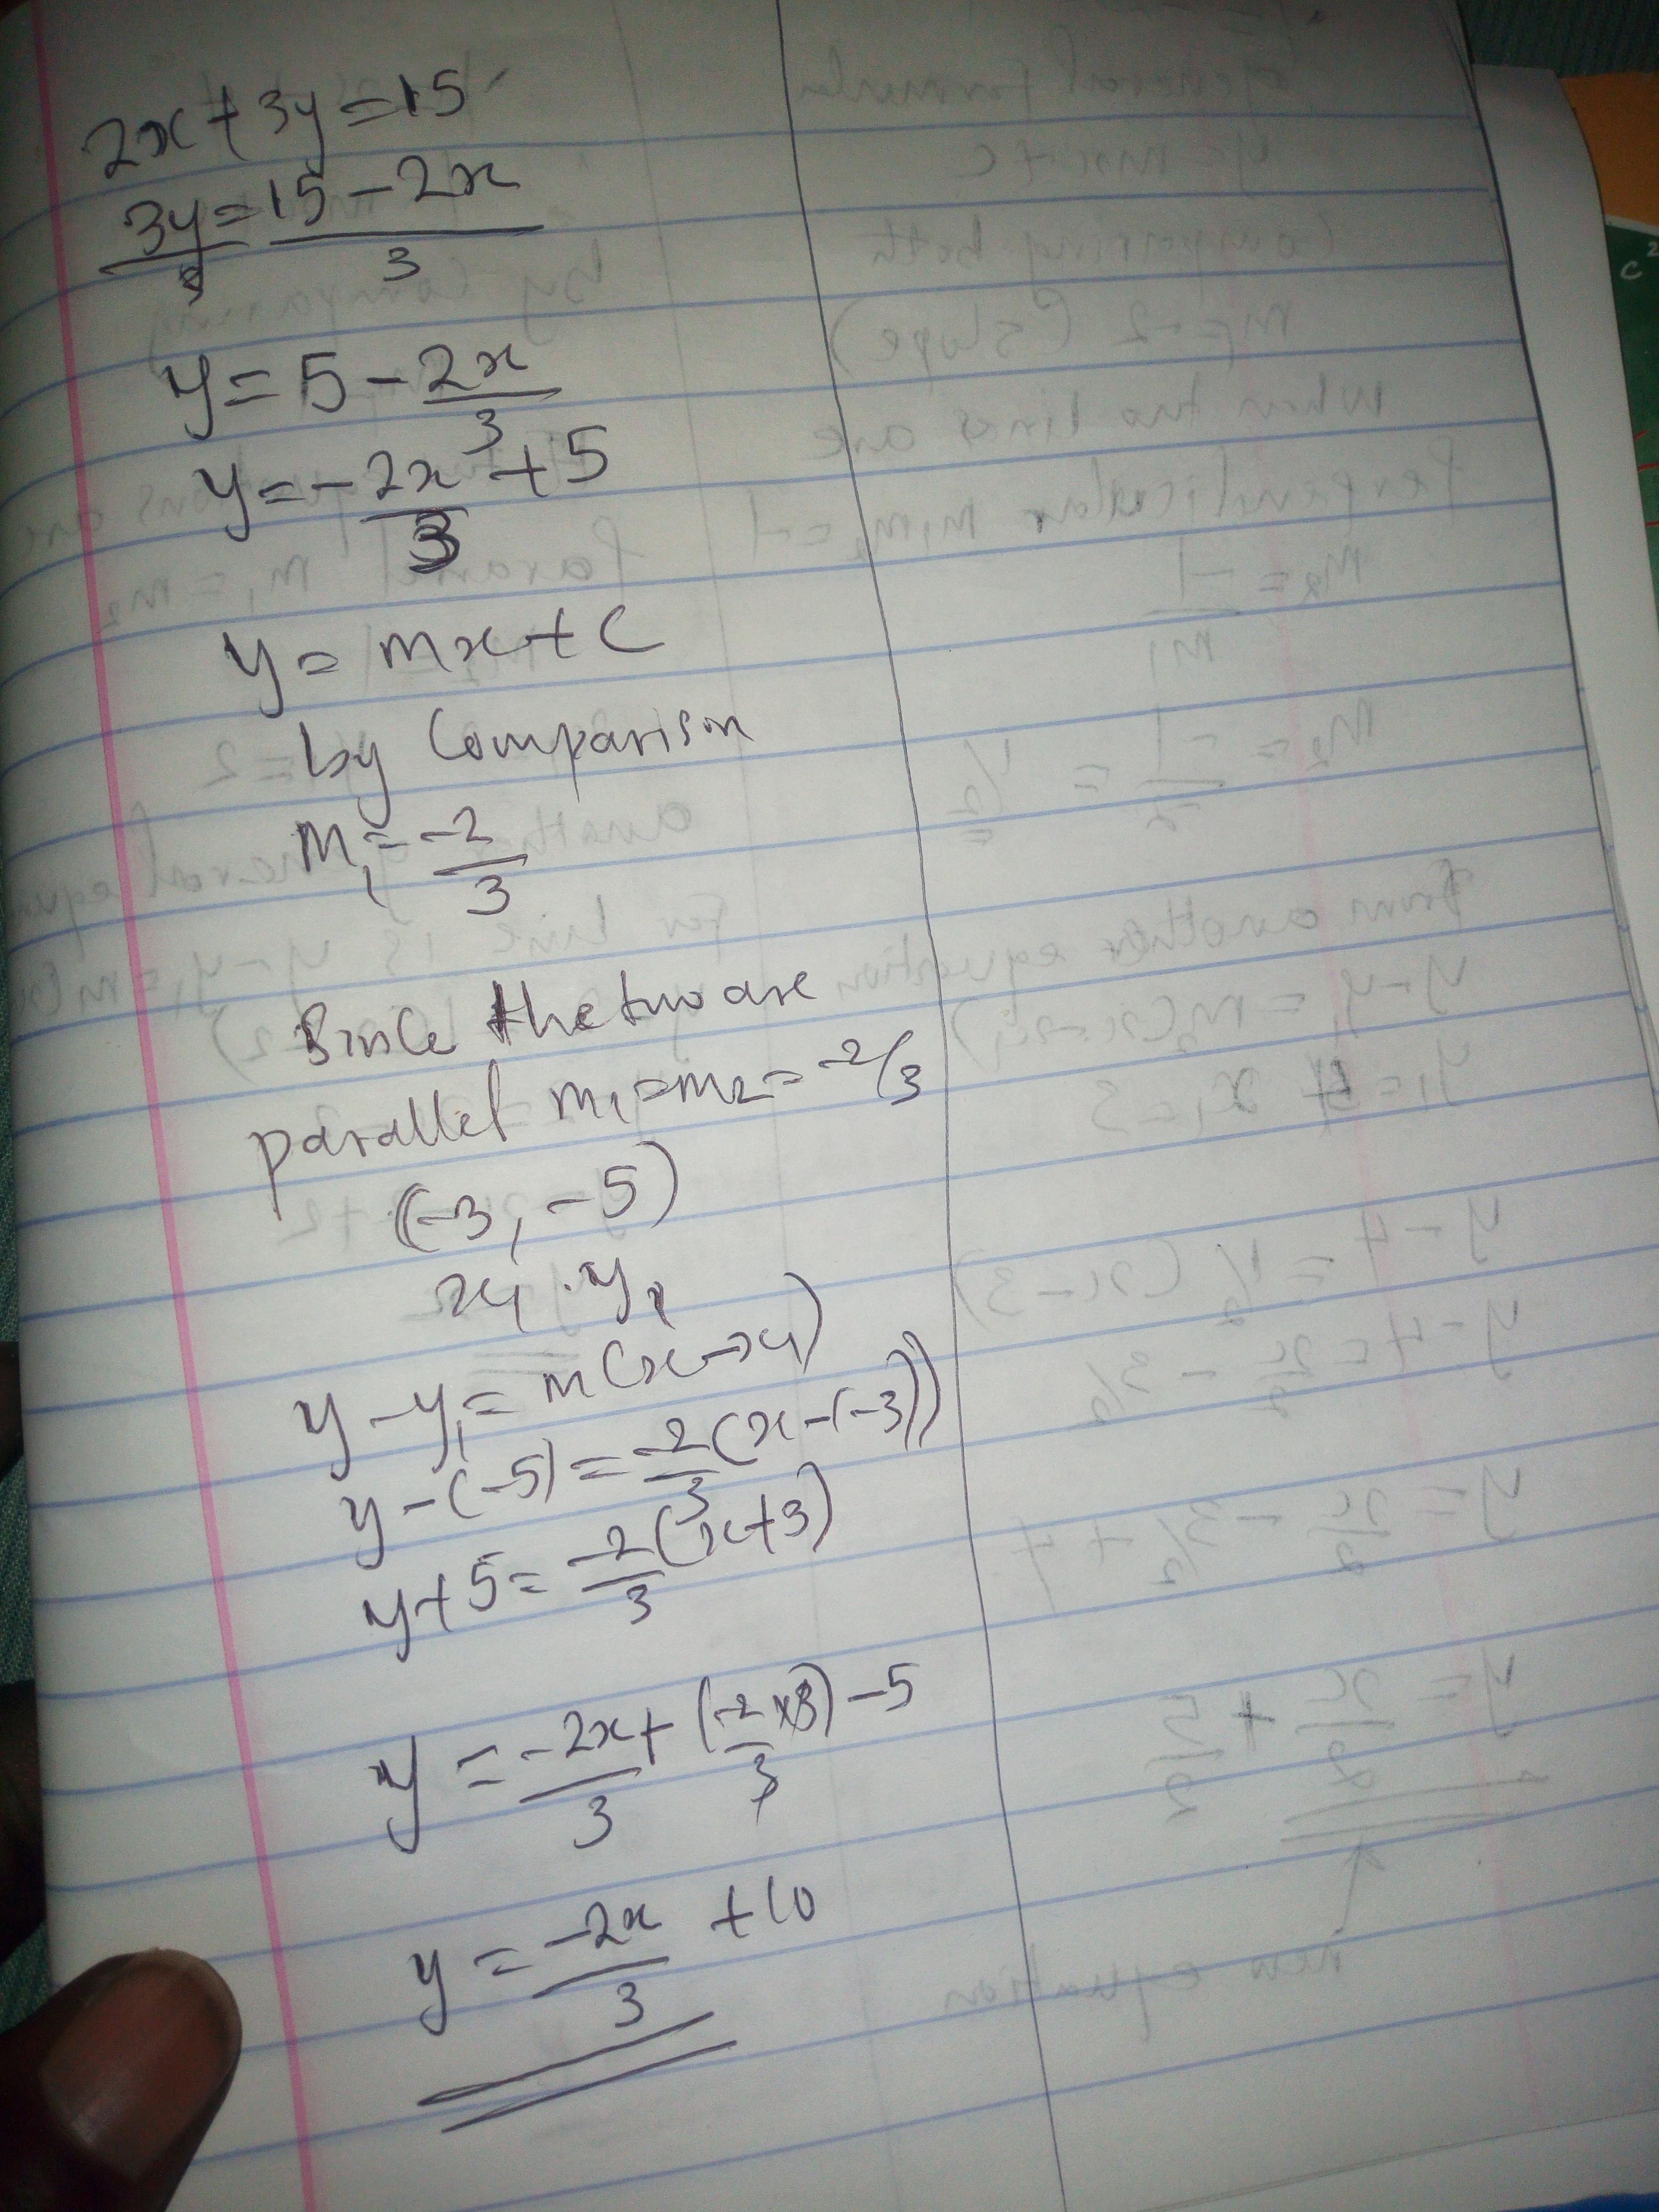 2x+3y=15
3y=15-2x
3 3
y=5-2x
3
y=-2x+5
3
y=mx+c
by Comparison
m₁=-2
3
Since the two are
parallel m₁=m₂=-2/3
(-3, -5)
x₁ . y₁
y-y₁=m(x-x₁)
y-(-5)=-2(x-(-3))
3
y+5=-2(x+3)
3
y=-2x+(-2x3)-5
3 3
y=-2x +10
3
c²